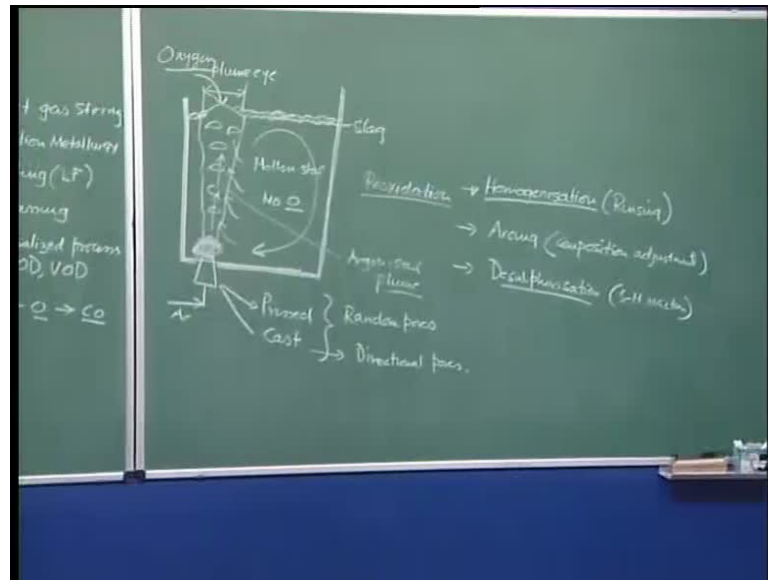 t gas Stirring
tion Metallurgy
ing (LF)
alized process
OD, VOD
O → CO
Oxygen
plume eye
Slag
Molten steel
No O
Argon-steel
plume
Ar
Pressed
Cast
Random pores
Directional pores.
Reoxidation → Homogenisation (Rinsing)
→ Arcing (composition adjustment)
→ Desulphurisation (S-M